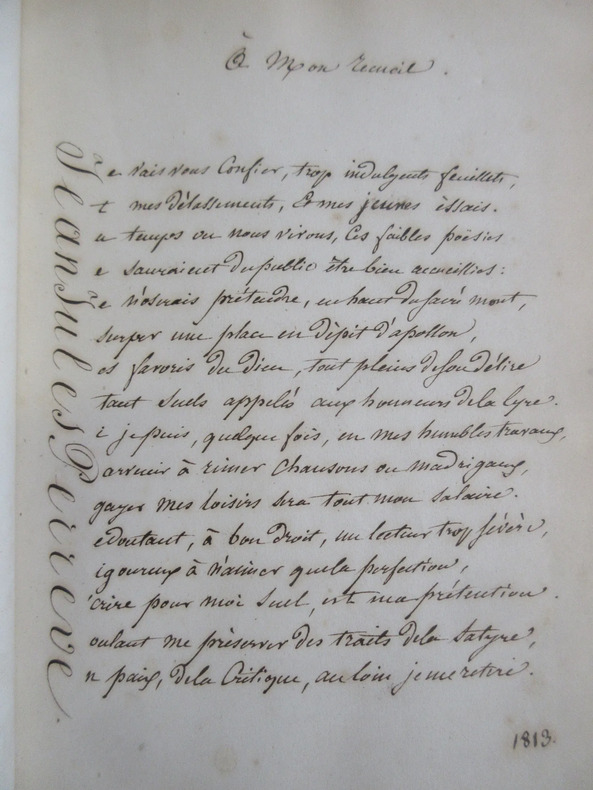 À Mon recueil.
Je vais vous Confier, trop indulgents feuillets,
Et mes délassements, & mes jeunes essais.
au temps ou nous vivons, Ces faibles poësies
ne sauroient du public être bien accueillies :
Je n'oserais prétendre, en haut du sacré mont,
usurper une place en dépit d'apollon,
les favoris du Dieu, tout pleins de son délire
etant seuls appelés aux honneurs de la lyre.
si je puis, quelque fois, en mes humbles travaux,
Parvenir à rimer Chansons ou madrigaux,
egayer mes loisirs sera tout mon salaire.
redoutant, à bon droit, un lecteur trop sévère,
rigoureux à n'aimer que la perfection,
ecrire pour moi seul, est ma prétention.
voulant me préserver des traits de la satyre,
en paix, de la Critique, au loin je me retire.
1813.